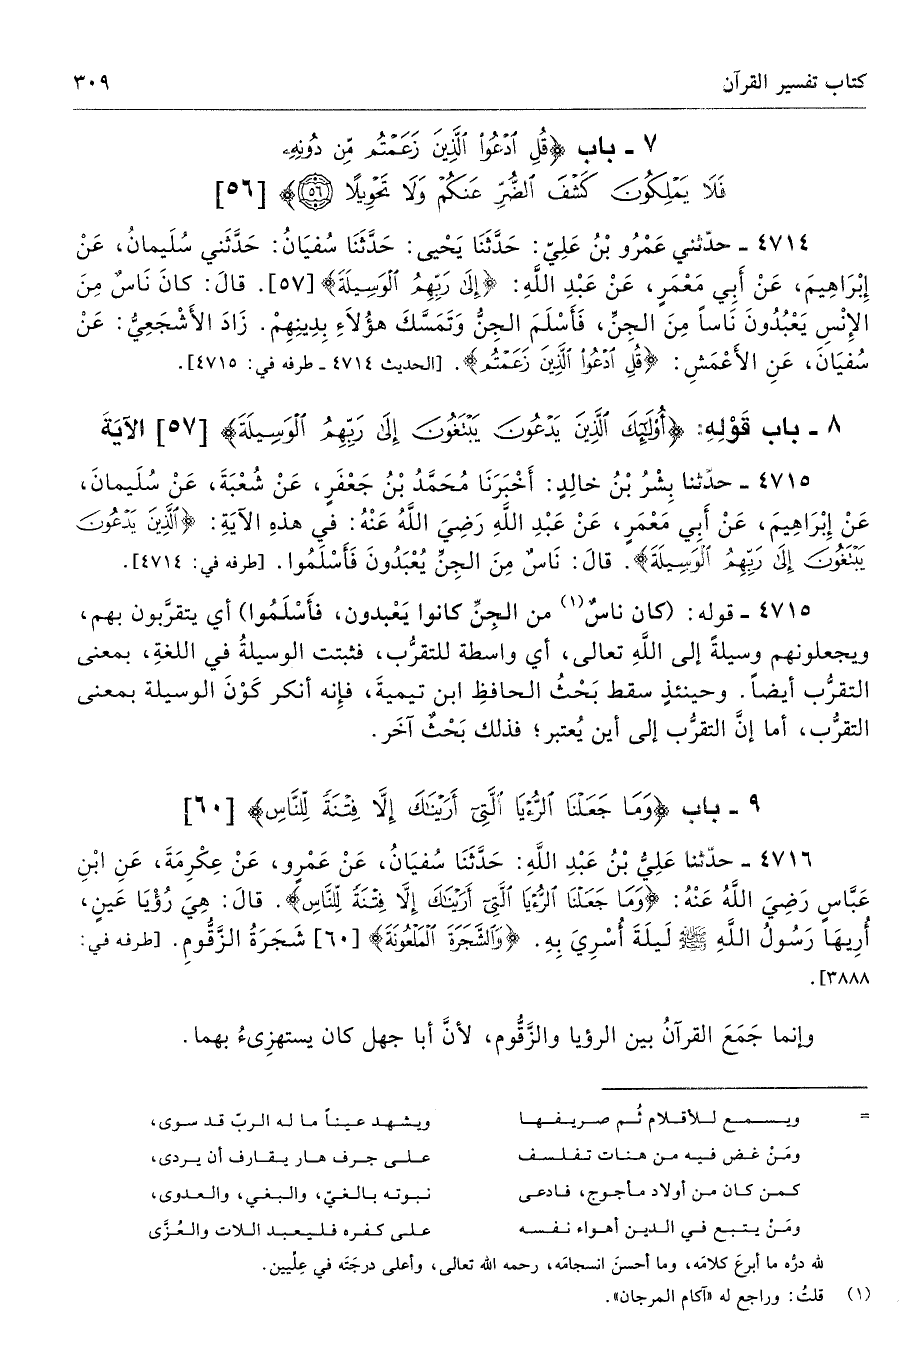 كتاب تفسير القرآن ٣٠٩
٧ ـ باب ﴿قُلِ ٱدْعُوا۟ ٱلَّذِينَ زَعَمْتُم مِّن دُونِهِۦ
فَلَا يَمْلِكُونَ كَشْفَ ٱلضُّرِّ عَنكُمْ وَلَا تَحْوِيلًا ۝٥٦﴾ [٥٦]
٤٧١٤ ـ حدّثني عَمْرُو بْنُ عَلِيّ: حَدَّثَنَا يَحْيى: حَدَّثَنَا سُفيَانُ: حَدَّثَني سُلَيمانُ، عَنْ
إِبْرَاهِيمَ، عَنْ أَبِي مَعْمَرٍ، عَنْ عَبْدِ اللَّهِ: ﴿إِلَىٰ رَبِّهِمُ ٱلْوَسِيلَةَ﴾ [٥٧]. قالَ: كانَ نَاسٌ مِنَ
الإِنْسِ يَعْبُدُونَ نَاساً مِنَ الجِنِّ، فَأَسْلَمَ الجِنُّ وَتَمَسَّكَ هؤُلَاءِ بِدِينِهِمْ. زَادَ الأَشْجَعِيُّ: عَنْ
سُفيَانَ، عَنِ الأَعْمَشِ: ﴿قُلِ ٱدْعُوا۟ ٱلَّذِينَ زَعَمْتُم﴾. [الحديث ٤٧١٤ ـ طرفه في: ٤٧١٥].
٨ ـ باب قَوْلِهِ: ﴿أُو۟لَٰٓئِكَ ٱلَّذِينَ يَدْعُونَ يَبْتَغُونَ إِلَىٰ رَبِّهِمُ ٱلْوَسِيلَةَ﴾ [٥٧] الآيَةَ
٤٧١٥ ـ حدّثنا بِشْرُ بْنُ خالِدٍ: أَخْبَرَنَا مُحَمَّدُ بْنُ جَعْفَرٍ، عَنْ شُعْبَةَ، عَنْ سُلَيمانَ،
عَنْ إِبْرَاهِيمَ، عَنْ أَبِي مَعْمَرٍ، عَنْ عَبْدِ اللَّهِ رَضِيَ اللَّهُ عَنْهُ: في هذهِ الآيَةِ: ﴿ٱلَّذِينَ يَدْعُونَ
يَبْتَغُونَ إِلَىٰ رَبِّهِمُ ٱلْوَسِيلَةَ﴾. قالَ: نَاسٌ مِنَ الجِنِّ يُعْبَدُونَ فَأَسْلَمُوا. [طرفه في: ٤٧١٤].
٤٧١٥ ـ قوله: (كان ناسٌ(١) من الجِنِّ كانوا يَعْبدون، فأَسْلَمُوا) أي يتقرَّبون بهم،
ويجعلونهم وسيلةً إلى اللَّهِ تعالى، أي واسطة للتقرُّب، فثبتت الوسيلةُ في اللغةِ، بمعنى
التقرُّب أيضاً. وحينئذٍ سقط بَحْثُ الحافظِ ابن تيميةَ، فإِنه أنكر كَوْنَ الوسيلة بمعنى
التقرُّب، أما إنَّ التقرُّب إلى أين يُعتبر؛ فذلك بَحْثٌ آخَر.
٩ ـ باب ﴿وَمَا جَعَلْنَا ٱلرُّءْيَا ٱلَّتِىٓ أَرَيْنَٰكَ إِلَّا فِتْنَةً لِّلنَّاسِ﴾ [٦٠]
٤٧١٦ ـ حدّثنا عَلِيُّ بْنُ عَبْدِ اللَّهِ: حَدَّثَنَا سُفيَانُ، عَنْ عَمْرٍو، عَنْ عِكْرِمَةَ، عَنِ ابْنِ
عَبَّاسٍ رَضِيَ اللَّهُ عَنْهُ: ﴿وَمَا جَعَلْنَا ٱلرُّءْيَا ٱلَّتِىٓ أَرَيْنَٰكَ إِلَّا فِتْنَةً لِّلنَّاسِ﴾. قالَ: هِيَ رُؤْيَا عَينٍ،
أُرِيهَا رَسُولُ اللَّهِ ﷺ لَيلَةَ أُسْرِيَ بِهِ. ﴿وَٱلشَّجَرَةَ ٱلْمَلْعُونَةَ﴾ [٦٠] شَجَرَةُ الزَّقُّومِ. [طرفه في:
٣٨٨٨].
وإنما جَمَعَ القرآنُ بين الرؤيا والزَّقُّوم، لأنَّ أبا جهل كان يستهزىءُ بهما.
= ويسمع للأقلام ثُم صريفها ويشهد عيناً ما له الربّ قد سوى،
ومَنْ غض فيه من هنات تفلسف على جرف هار يقارف أن يردى،
كمن كان من أولاد مأجوج، فادعى نبوته بالغيّ، والبغي، والعدوى،
ومَنْ يتبع في الدين أهواء نفسه على كفره فليعبد اللات والعُزَّى
لله درُّه ما أبرعَ كلامَه، وما أحسنَ انسجامَه، رحمه الله تعالى، وأعلى درجتَه في عِلِّيين.
(١) قلتُ: وراجع له «آكام المرجان».